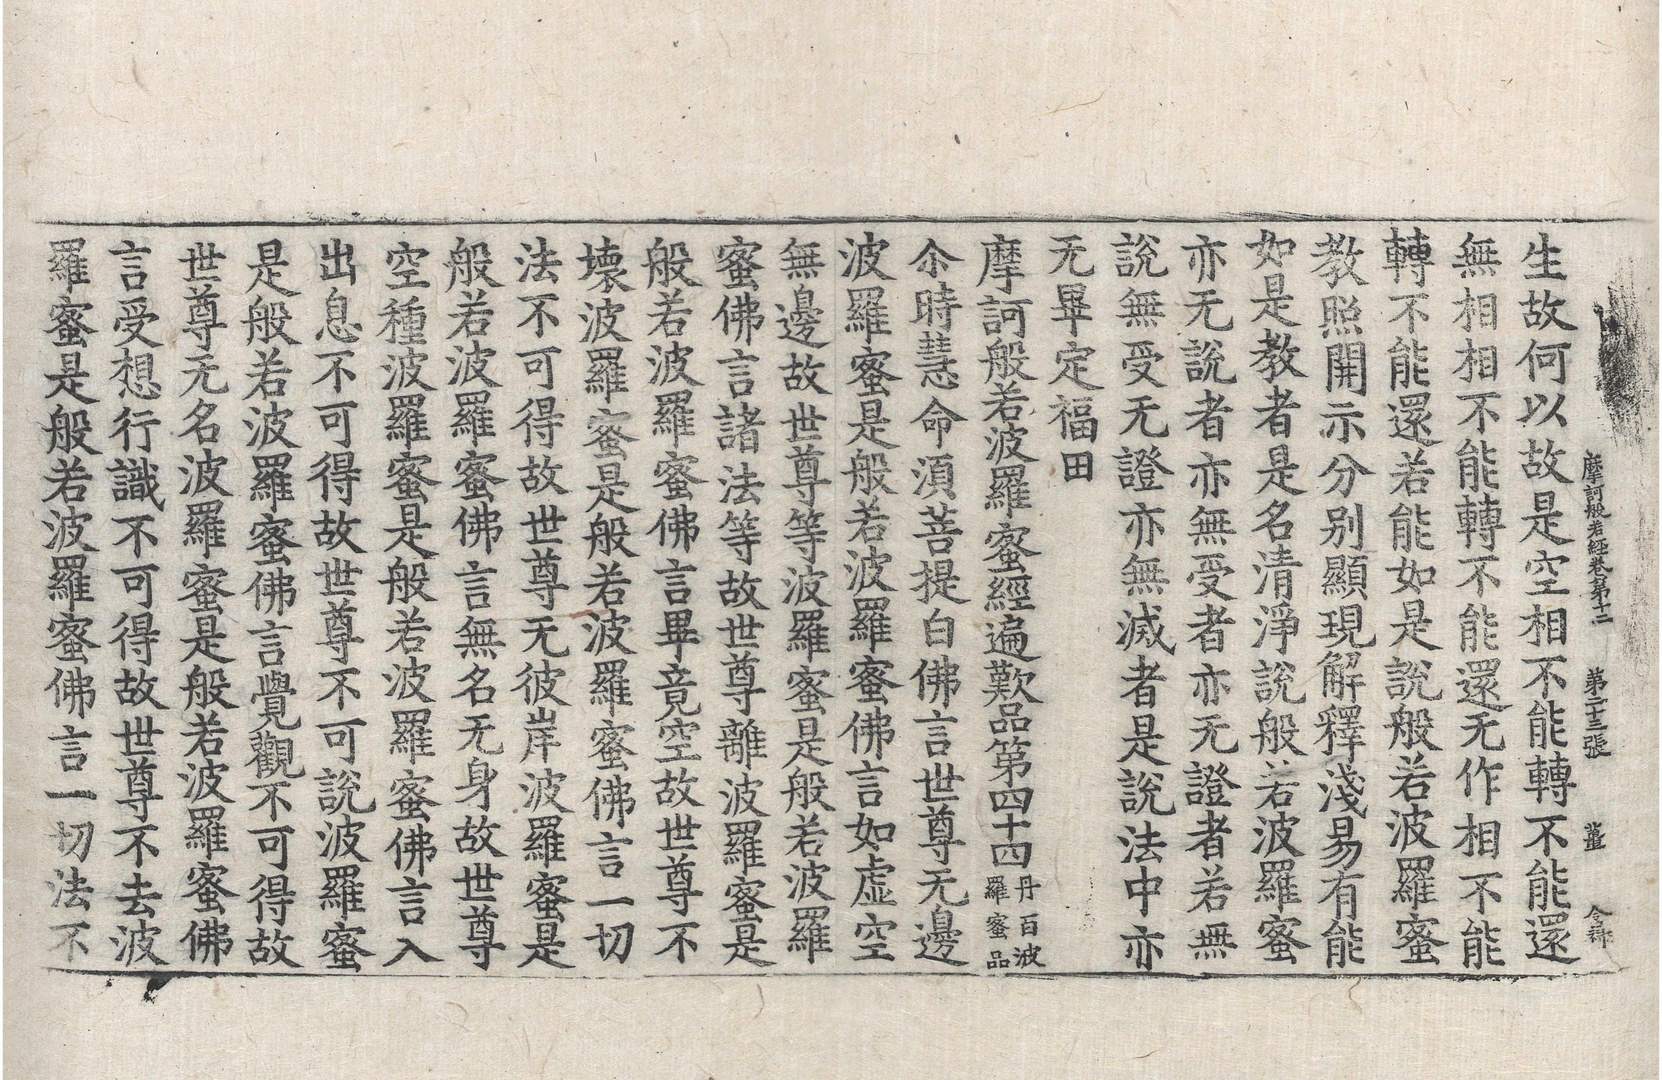 摩訶般若經卷第十二 第二十三張 薑
生故何以故是空相不能轉不能還
無相相不能轉不能還无作相不能
轉不能還若能如是說般若波羅蜜
教照開示分別顯現解釋淺易有能
如是教者是名清淨說般若波羅蜜
亦无說者亦無受者亦无證者若無
說無受无證亦無滅者是說法中亦
无畢定福田
摩訶般若波羅蜜經遍歎品第四十四丹百波羅蜜品
尒時慧命須菩提白佛言世尊无邊
波羅蜜是般若波羅蜜佛言如虛空
無邊故世尊等波羅蜜是般若波羅
蜜佛言諸法等故世尊離波羅蜜是
般若波羅蜜佛言畢竟空故世尊不
壞波羅蜜是般若波羅蜜佛言一切
法不可得故世尊无彼岸波羅蜜是
般若波羅蜜佛言無名无身故世尊
空種波羅蜜是般若波羅蜜佛言入
出息不可得故世尊不可說波羅蜜
是般若波羅蜜佛言覺觀不可得故
世尊无名波羅蜜是般若波羅蜜佛
言受想行識不可得故世尊不去波
羅蜜是般若波羅蜜佛言一切法不